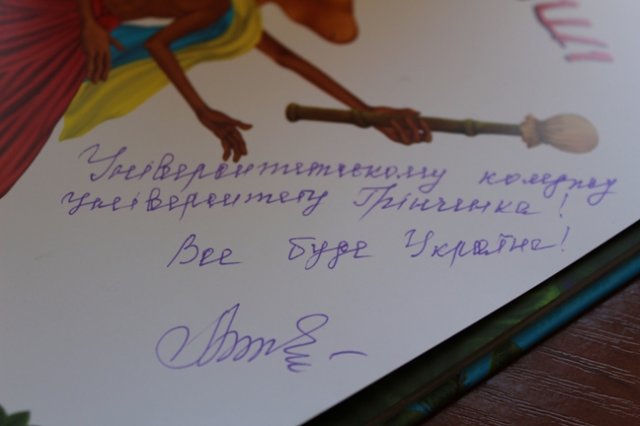 Університетському коледжу
університету Грінченка!
Все буде Україна!